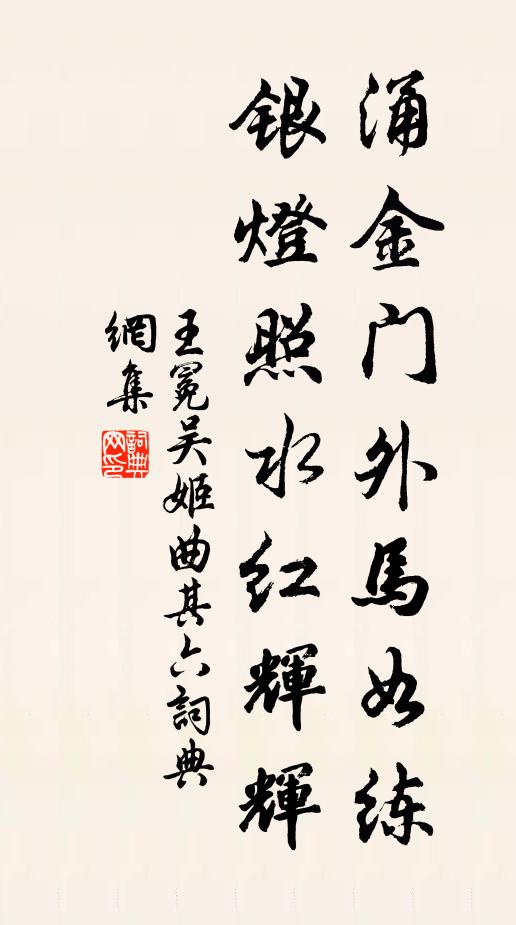 涌金门外馬如练
銀燈照水红輝輝
王冕吴姬曲其六詞典
網集
詞典網印